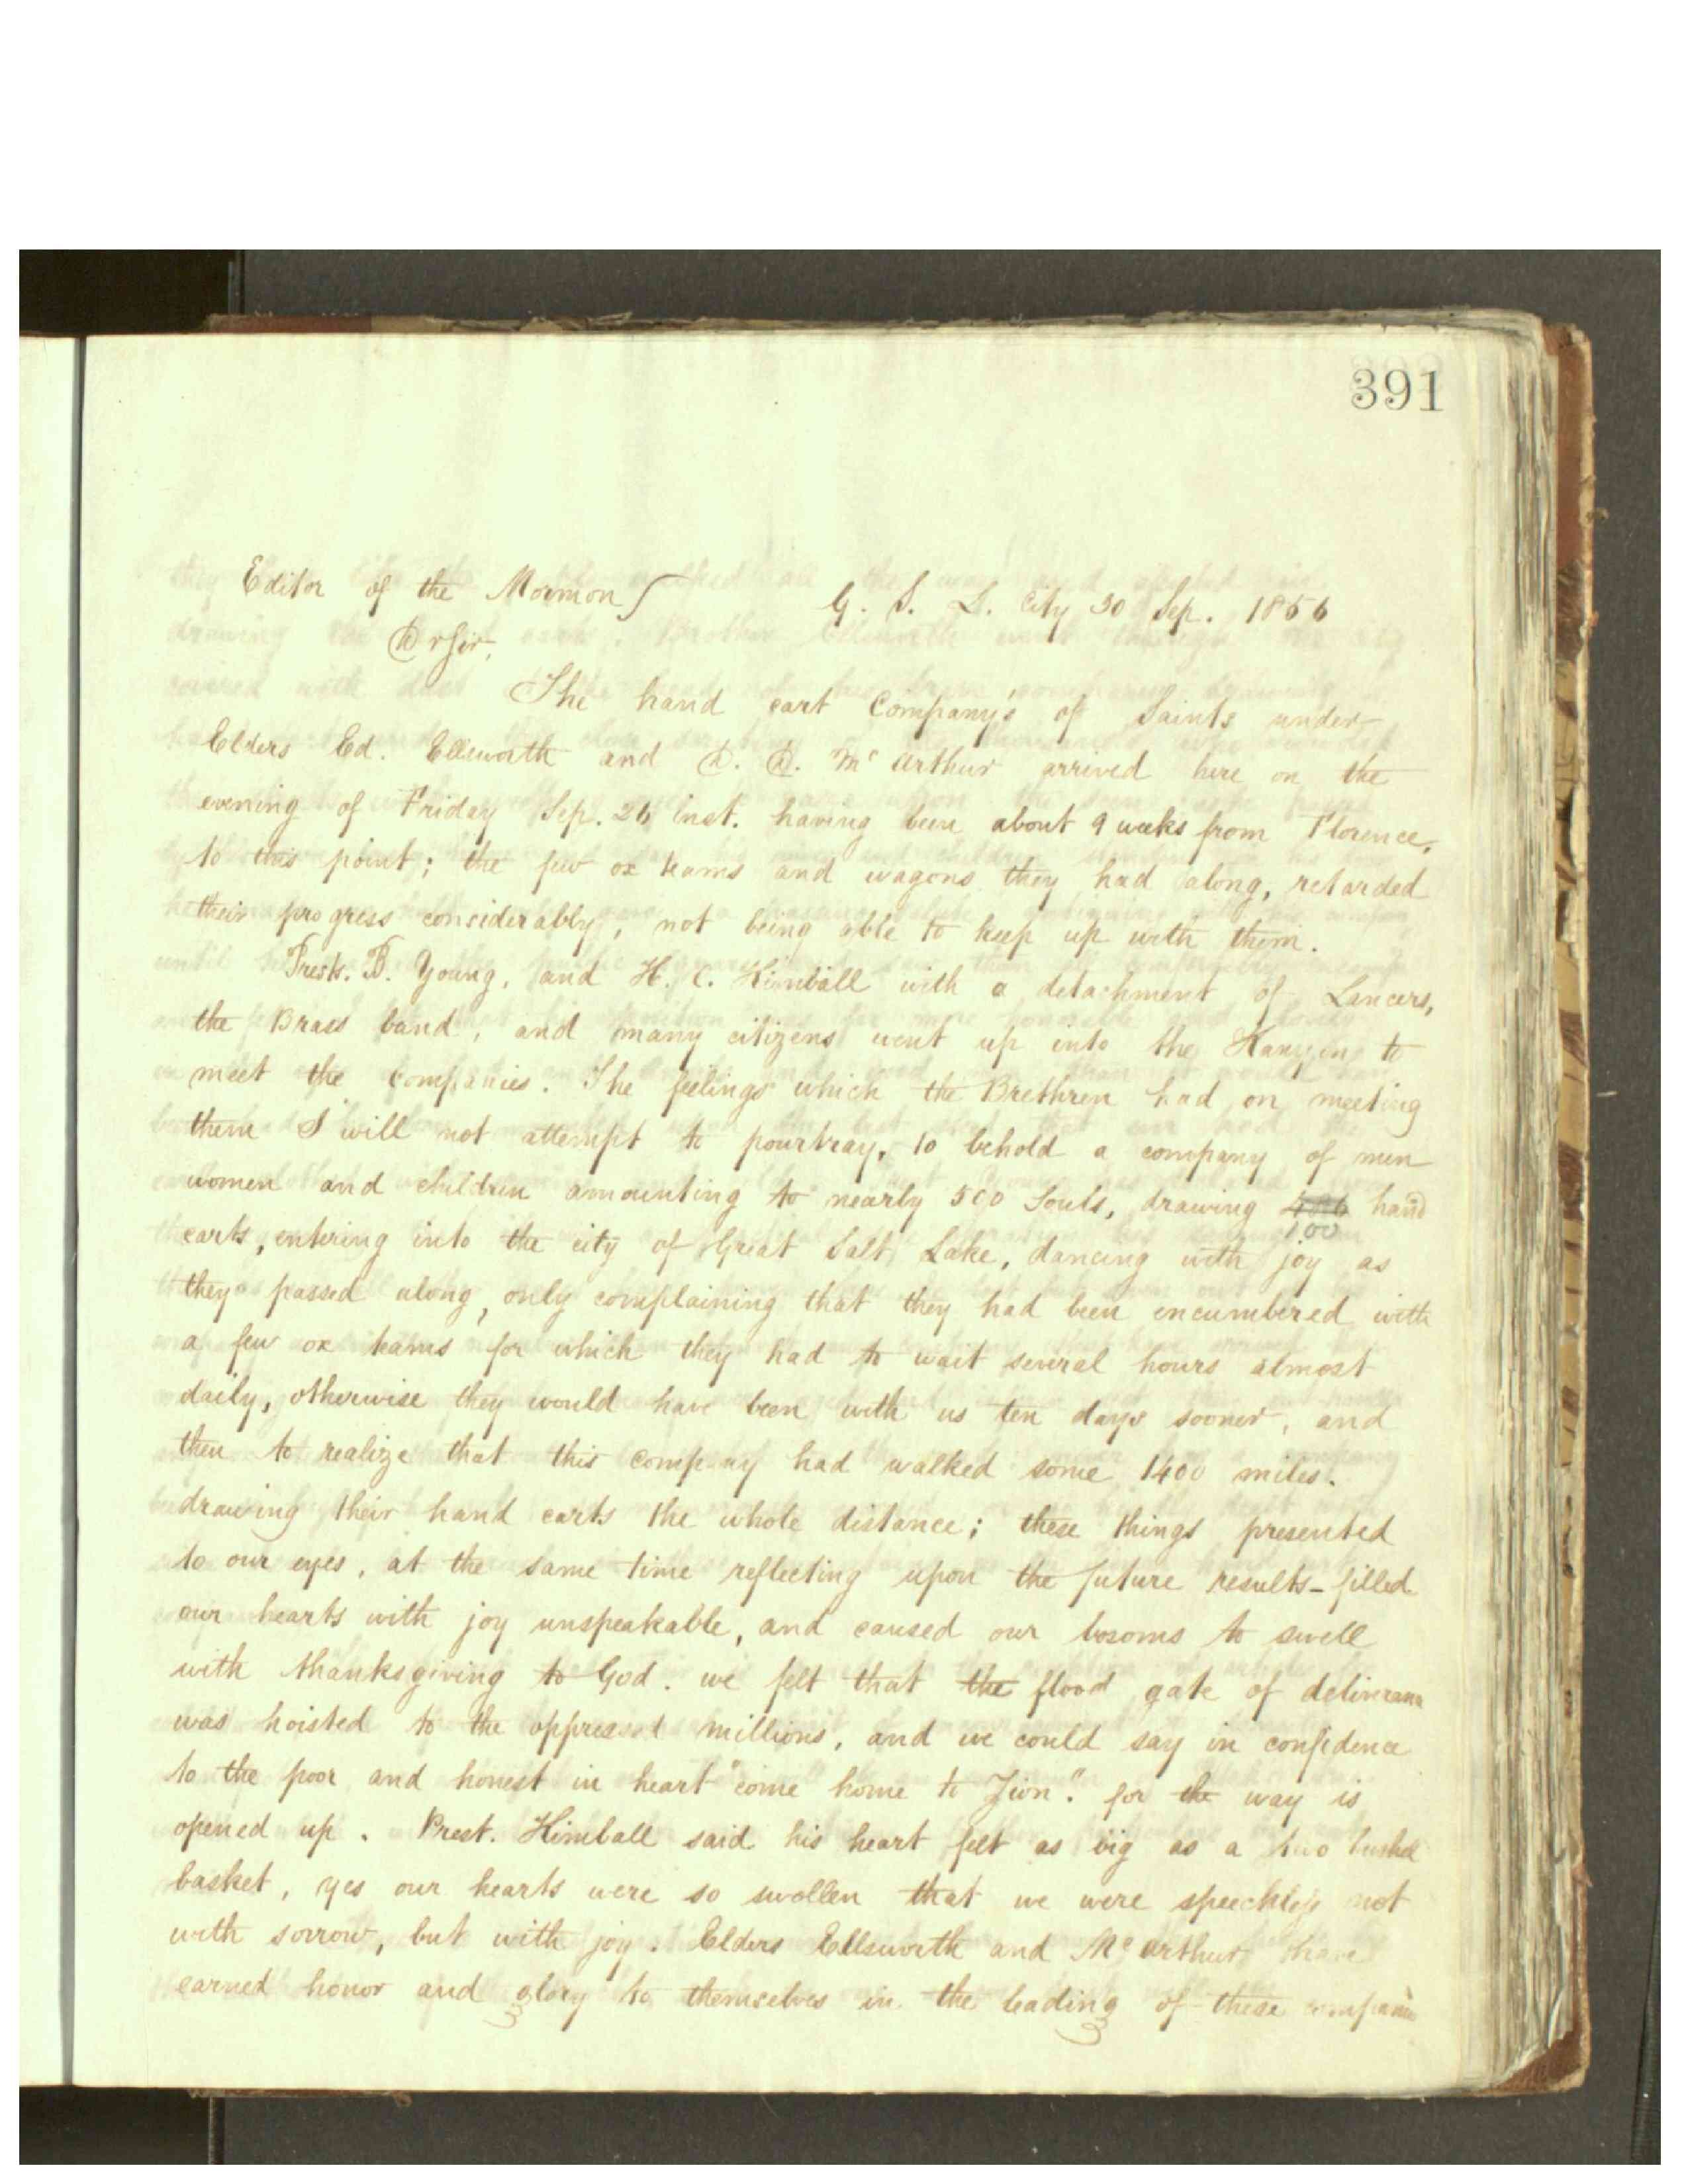 391
Editor of the Mormon G. S. L. City 30 Sep. 1856
Dr Sir,
The hand cart Company's of Saints under
Elders Ed. Ellsworth and D. D. Mc Arthur arrived here on the
evening of Friday Sep. 26 inst. having been about 9 weeks from Florence,
to this point; the few ox teams and wagons they had along, retarded
their progress considerably, not being able to keep up with them.
Prests. B. Young, and H. C. Kimball with a detachment of Lancers,
the Brass band, and many citizens went up into the Kanyon to
meet the companies. The feelings which the Brethren had on meeting
them I will not attempt to pourtray, to behold a company of men
women and children amounting to nearly 500 Souls, drawing hand
100
carts, entering into the city of Great Salt Lake, dancing with joy as
they passed along, only complaining that they had been encumbered with
a few ox teams for which they had to wait several hours almost
daily, otherwise they would have been with us ten days sooner, and
then to realize that this company had walked some 1400 miles.
drawing their hand carts the whole distance; these things presented
to our eyes, at the same time reflecting upon the future results - filled
our hearts with joy unspeakable, and caused our bosoms to swell
with thanksgiving to God. we felt that the flood gate of deliverance
was hoisted to the oppressed millions, and we could say in confidence
to the poor and honest in heart "come home to Zion". for the way is
opened up. Prest. Kimball said his heart felt as big as a two bushel
basket, yes our hearts were so swollen that we were speechless not
with sorrow, but with joy. Elders Ellsworth and Mc Arthur have
earned honor and glory to themselves in the leading of these companies